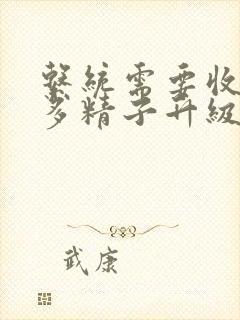 繫統需要收
多精子升級
武康